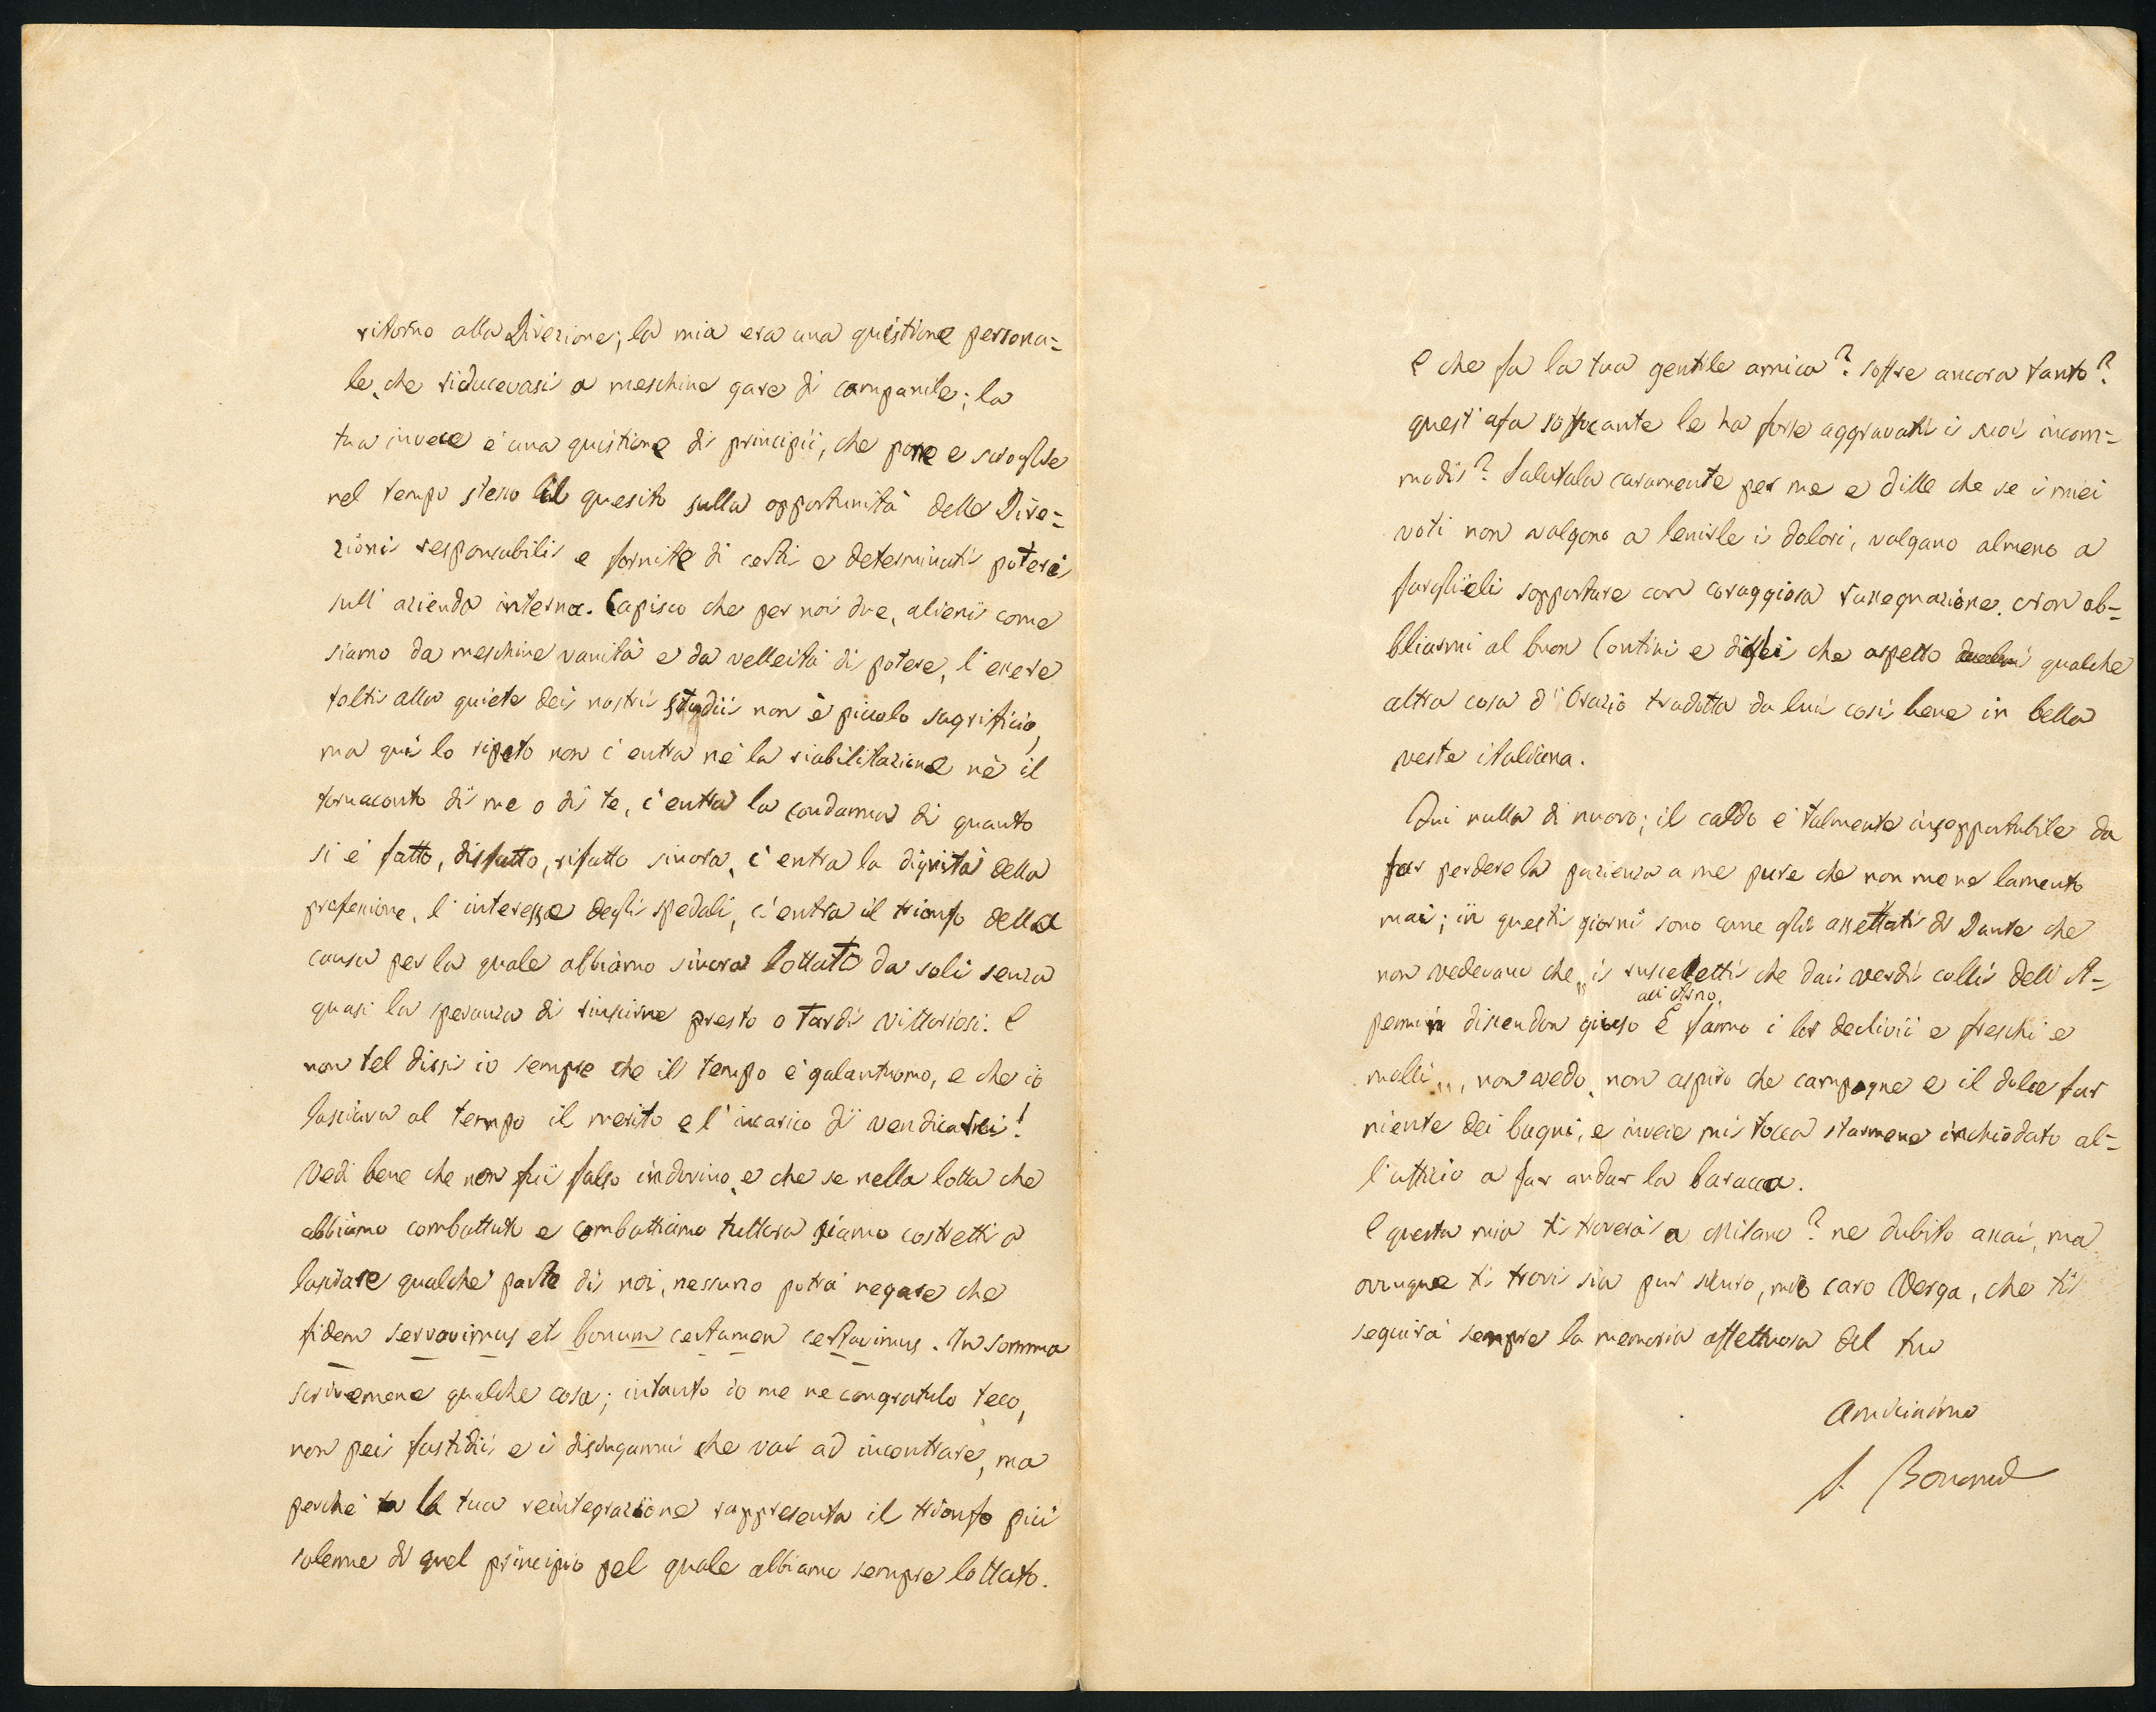 ritorno alla Direzione; la mia era una quistione persona=
le, che riducevasi a meschine gare di campanile; la
tua invece è una quistione di principii, che pone e scioglie
nel tempo stesso il quesito sulla opportunità delle Dire=
zioni responsabili e fornite di certi e determinati poteri
sull'azienda interna. Capisco che per noi due, alieni come
siamo da meschine vanità e da velleità di potere, l'essere
tolti alla quiete dei nostri studii non è piccolo sagrificio,
ma qui lo ripeto non c'entra nè la riabilitazione nè il
tornaconto di me o di te, c'entra la condanna di quanto
si è fatto, disfatto, rifatto sinora, c'entra la dignità della
professione, l'interesse degli spedali, c'entra il trionfo della
causa per la quale abbiamo sinora lottato da soli senza
quasi la speranza di riuscirne presto o tardi vittoriosi. E
non tel dissi io sempre che il tempo è galantuomo, e che io
lasciava al tempo il merito e l'incarico di vendicarci!
Vedi bene che non fui falso indovino, e che se nella lotta che
abbiamo combattuto e combattiamo tuttora siamo costretti a
lasciare qualche parte di noi, nessuno potrà negare che
fidem servavimus et bonum certamen certavimus. In somma
scrivemene qualche cosa; intanto io me ne congratulo teco,
non pei fastidii e i disinganni che vai ad incontrare, ma
perchè la tua reintegrazione rappresenta il trionfo più
solenne di quel principio pel quale abbiamo sempre lottato.
E che fa la tua gentile amica? soffre ancora tanto?
quest'afa soffocante le ha forse aggravati i suoi incom=
modi? Salutala caramente per me e dille che se i miei
voti non valgono a lenirle i dolori, valgano almeno a
farglieli sopportare con coraggiosa rassegnazione. Non ob=
bliarmi al buon Contini e digli che aspetto qualche
altra cosa d'Orazio tradotta da lui così bene in bella
veste italiana.
Qui nulla di nuovo; il caldo è talmente insopportabile da
far perdere la pazienza a me pure che non me ne lamento
mai; in questi giorni sono come gli assettati di Dante che
non vedevano che „ i ruscelletti che dai verdi colli dell'A=
pennin discendon giuso all'Arno, E fanno i lor declivii e freschi e
molli „, non vedo, non aspiro che campagne e il dolce far
niente dei bagni, e invece mi tocca starmene inchiodato al=
l'uffizio a far andar la baracca.
E questa mia ti troverà a Milano? ne dubito assai, ma
ovunque ti trovi sia pur sicuro, mio caro Verga, che ti
seguirà sempre la memoria affettuosa del tuo
Amicissimo